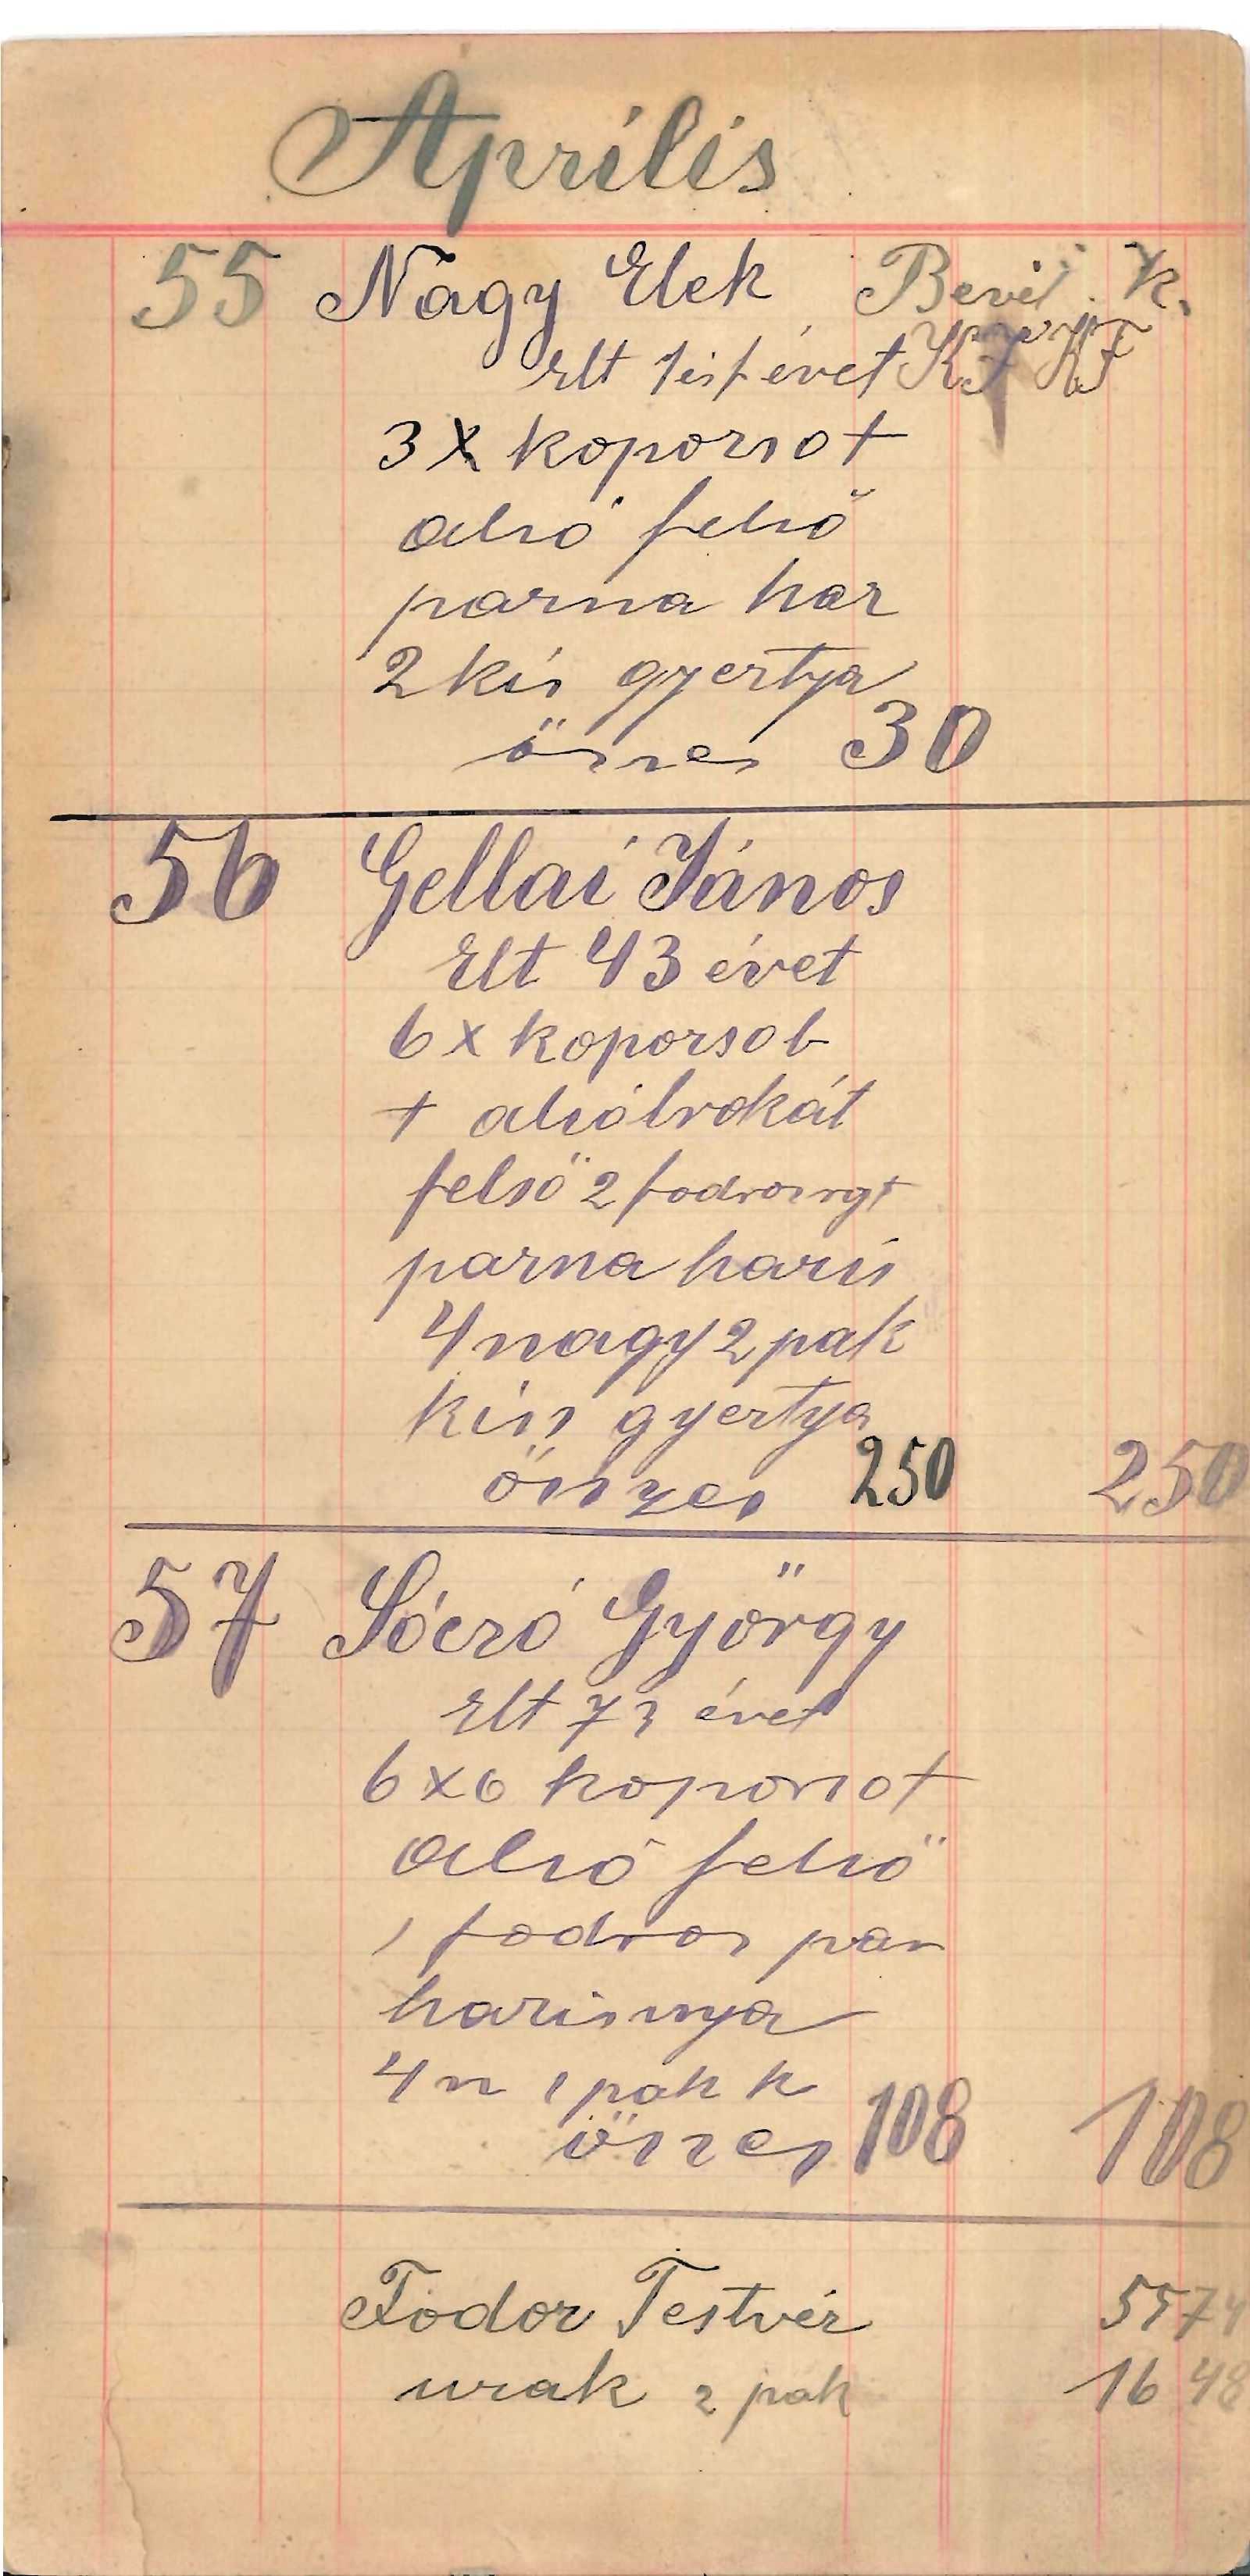 Április
55 Nagy Elek Bevét. K.
Elt 1 és f évet Kf Kf
3 X koporsot
alsó felső
parna har
2 kis gyertya
össes 30
56 Gellai János
Elt 43 évet
6 x koporsob
+ alsó brokát
felső 2 fodros
parna haris
4 nagy 2 pak
kiss gyertya
összes 250 250
57 Sócró György
Elt 73 évet
6 x 6 koporsot
alsó felső
1 fodros par
harisnya
4 n 1 pak k
öszes 108 108
Fodor Testvér 5574
urak 2 pak 16 48